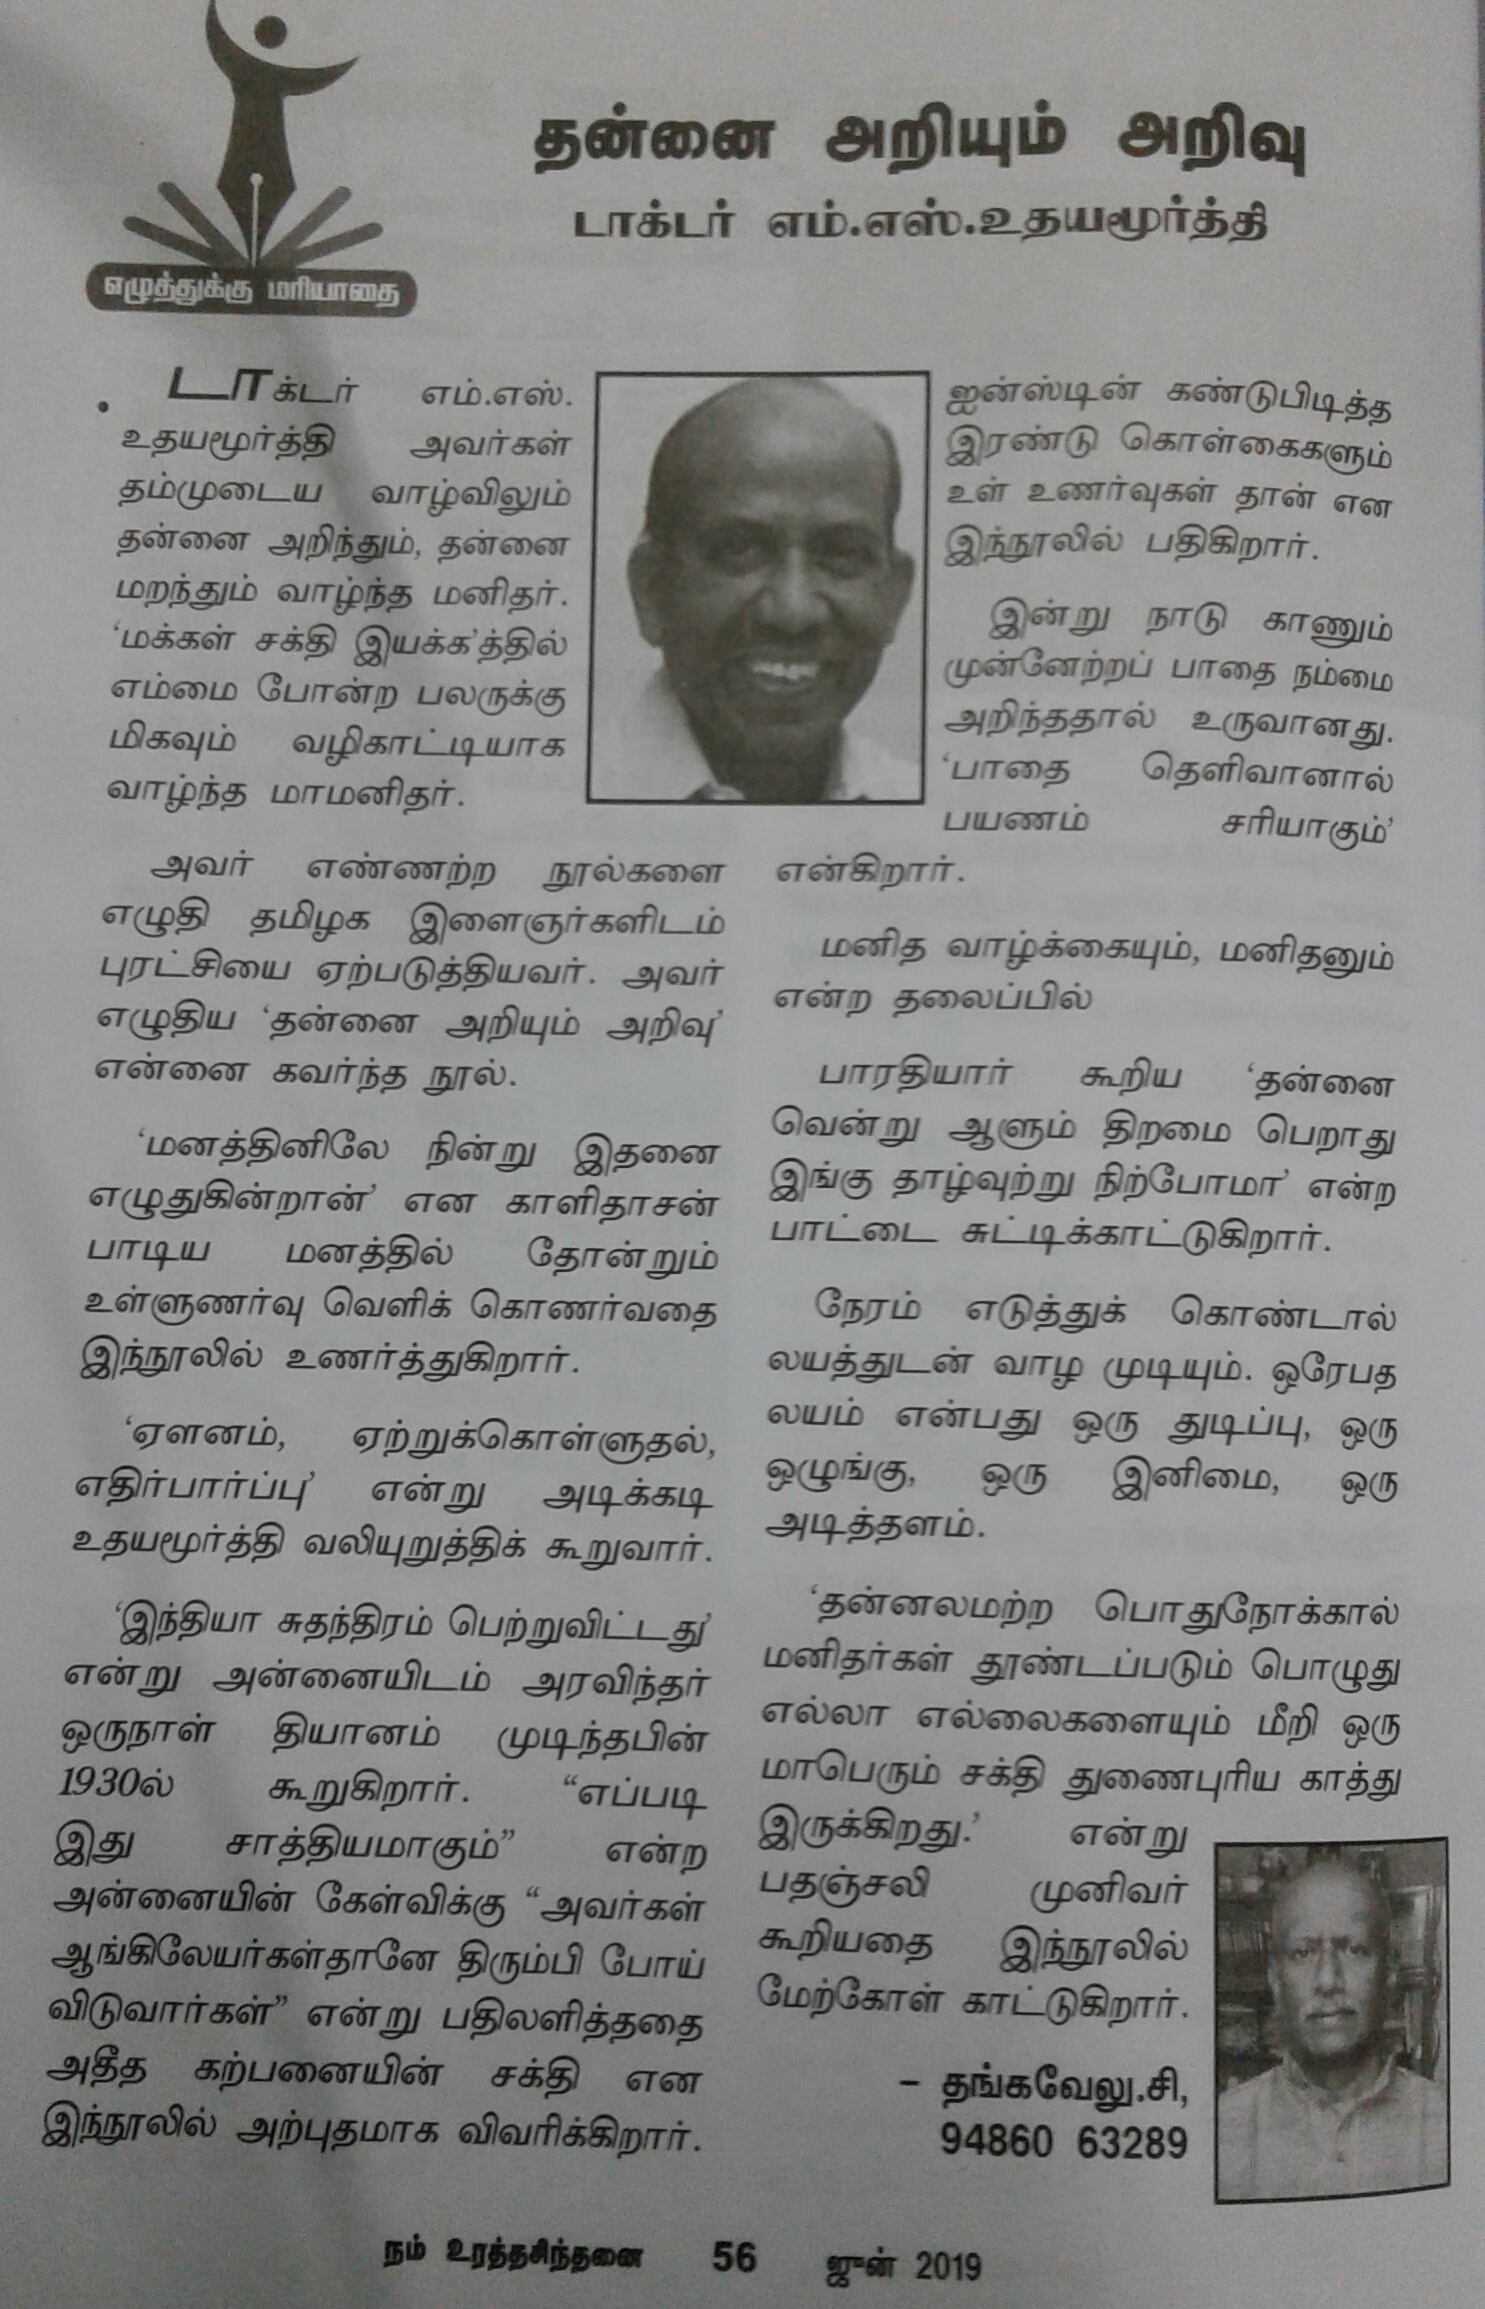 தன்னை அறியும் அறிவு
டாக்டர் எம்.எஸ்.உதயமூர்த்தி
எழுத்துக்கு மரியாதை
டாக்டர் எம்.எஸ்.
உதயமூர்த்தி அவர்கள்
தம்முடைய வாழ்விலும்
தன்னை அறிந்தும், தன்னை
மறந்தும் வாழ்ந்த மனிதர்.
‘மக்கள் சக்தி இயக்க’த்தில்
எம்மை போன்ற பலருக்கு
மிகவும் வழிகாட்டியாக
வாழ்ந்த மாமனிதர்.
அவர் எண்ணற்ற நூல்களை
எழுதி தமிழக இளைஞர்களிடம்
புரட்சியை ஏற்படுத்தியவர். அவர்
எழுதிய ‘தன்னை அறியும் அறிவு’
என்னை கவர்ந்த நூல்.
‘மனத்தினிலே நின்று இதனை
எழுதுகின்றான்’ என காளிதாசன்
பாடிய மனத்தில் தோன்றும்
உள்ளுணர்வு வெளிக் கொணர்வதை
இந்நூலில் உணர்த்துகிறார்.
‘ஏளனம், ஏற்றுக்கொள்ளுதல்,
எதிர்பார்ப்பு’ என்று அடிக்கடி
உதயமூர்த்தி வலியுறுத்திக் கூறுவார்.
‘இந்தியா சுதந்திரம் பெற்றுவிட்டது’
என்று அன்னையிடம் அரவிந்தர்
ஒருநாள் தியானம் முடிந்தபின்
1930ல் கூறுகிறார். “எப்படி
இது சாத்தியமாகும்” என்ற
அன்னையின் கேள்விக்கு “அவர்கள்
ஆங்கிலேயர்கள்தானே திரும்பி போய்
விடுவார்கள்” என்று பதிலளித்ததை
அதீத கற்பனையின் சக்தி என
இந்நூலில் அற்புதமாக விவரிக்கிறார்.
ஐன்ஸ்டின் கண்டுபிடித்த
இரண்டு கொள்கைகளும்
உள் உணர்வுகள் தான் என
இந்நூலில் பதிகிறார்.
இன்று நாடு காணும்
முன்னேற்றப் பாதை நம்மை
அறிந்ததால் உருவானது.
‘பாதை தெளிவானால்
பயணம் சரியாகும்’
என்கிறார்.
மனித வாழ்க்கையும், மனிதனும்
என்ற தலைப்பில்
பாரதியார் கூறிய ‘தன்னை
வென்று ஆளும் திறமை பெறாது
இங்கு தாழ்வுற்று நிற்போமா’ என்ற
பாட்டை சுட்டிக்காட்டுகிறார்.
நேரம் எடுத்துக் கொண்டால்
லயத்துடன் வாழ முடியும். ஒரேபத
லயம் என்பது ஒரு துடிப்பு, ஒரு
ஒழுங்கு, ஒரு இனிமை, ஒரு
அடித்தளம்.
‘தன்னலமற்ற பொதுநோக்கால்
மனிதர்கள் தூண்டப்படும் பொழுது
எல்லா எல்லைகளையும் மீறி ஒரு
மாபெரும் சக்தி துணைபுரிய காத்து
இருக்கிறது.’ என்று
பதஞ்சலி முனிவர்
கூறியதை இந்நூலில்
மேற்கோள் காட்டுகிறார்.
– தங்கவேலு.சி,
94860 63289
நம் உரத்தசிந்தனை 56 ஜுன் 2019